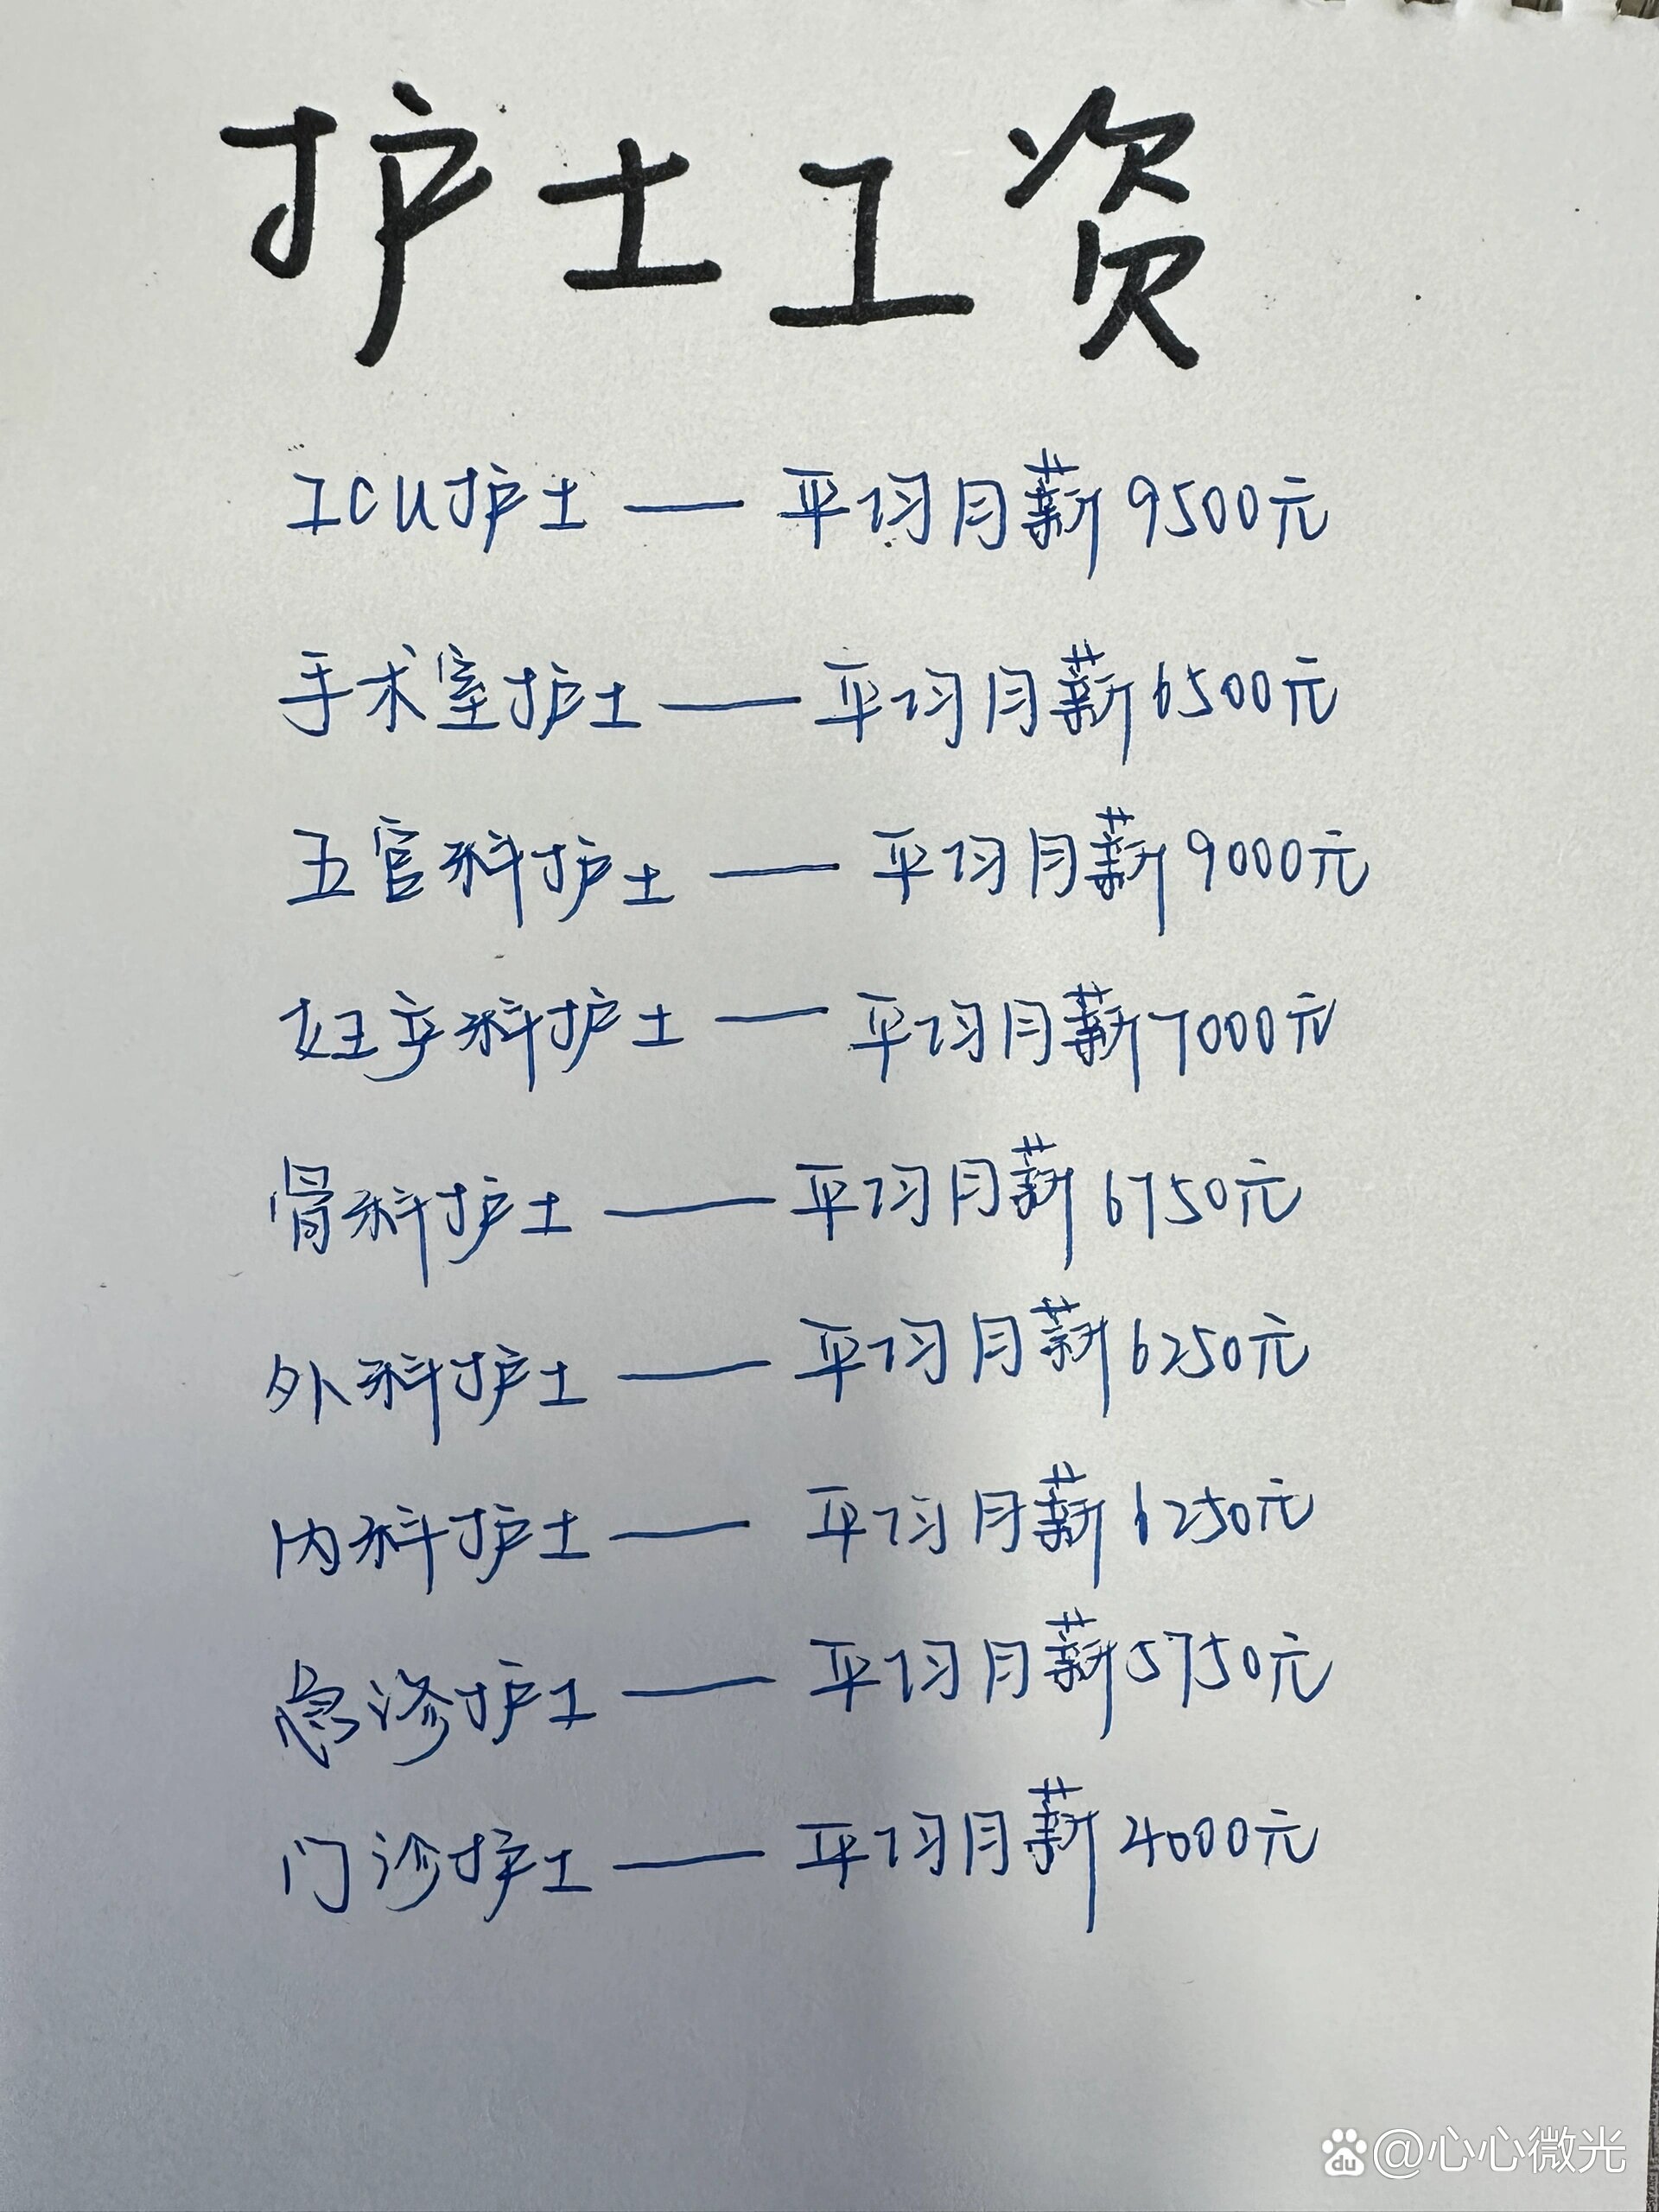 护士工资
ICU护士——平均月薪9500元
手术室护士——平均月薪6500元
五官科护士——平均月薪9000元
妇产科护士——平均月薪7000元
骨科护士——平均月薪6750元
外科护士——平均月薪6250元
内科护士——平均月薪6250元
急诊护士——平均月薪5750元
门诊护士——平均月薪4000元
du @心心微光